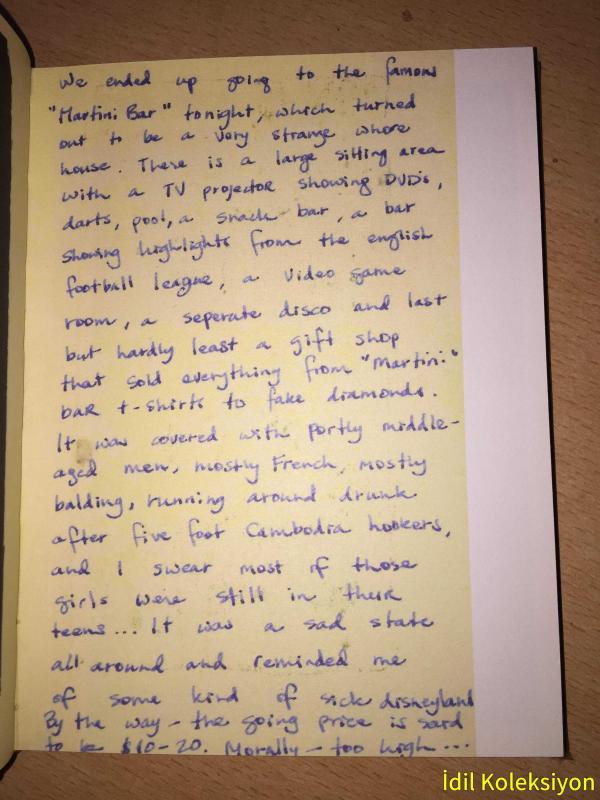 We ended up going to the famous
"Martini Bar" tonight, which turned
out to be a very strange whore
house. There is a large sitting area
with a TV projector showing DVDs,
darts, pool, a snack bar, a bar
showing highlights from the english
football league, a video game
room, a seperate disco and last
but hardly least a gift shop
that sold everything from "Martini"
bar t-shirts to fake diamonds.
It was covered with portly middle-
aged men, mostly French, mostly
balding, running around drunk
after five foot Cambodia hookers,
and I swear most of those
girls were still in their
teens... It was a sad state
all around and reminded me
of some kind of sick disneyland
By the way - the going price is said
to be $10-20. Morally - too high...
İdil Koleksiyon